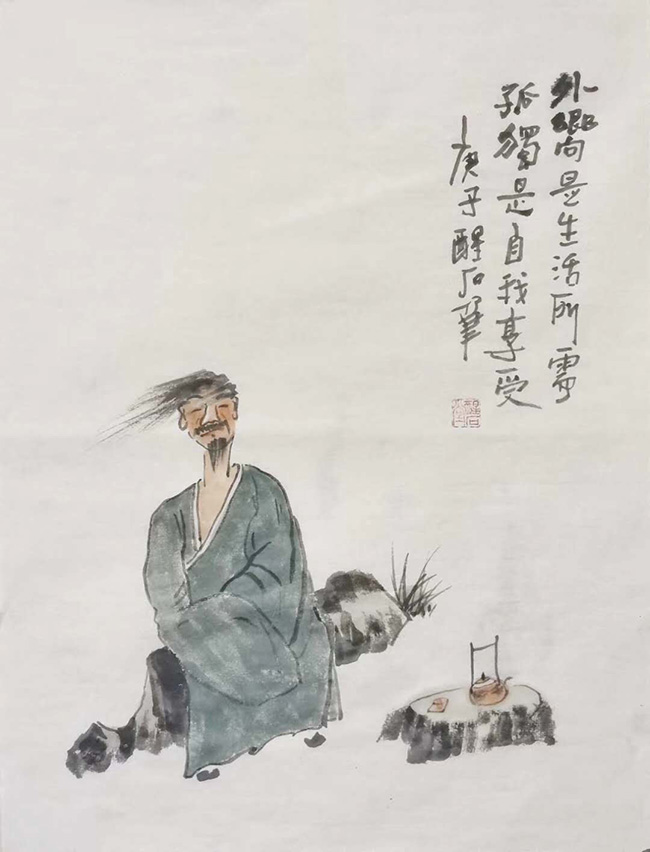 外嚮是生活所需
孤獨是自我享受
庚子醒石筆